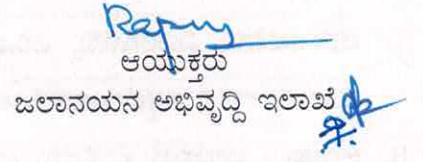 ಆಯುಕ್ತರು
ಜಲಾನಯನ ಅಭಿವೃದ್ಧಿ ಇಲಾಖೆ